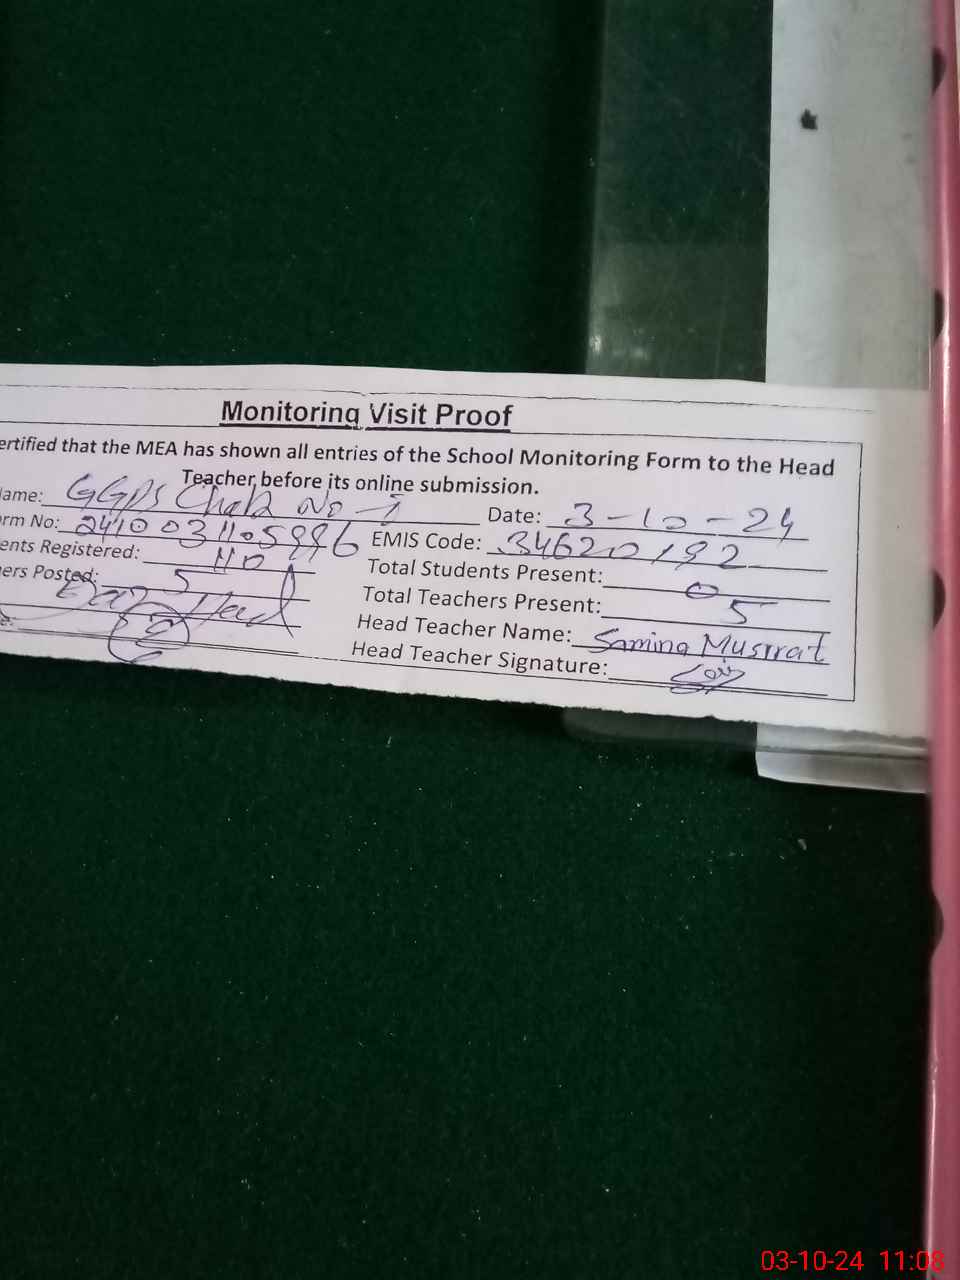 Monitoring Visit Proof
ertified that the MEA has shown all entries of the School Monitoring Form to the Head
Teacher before its online submission.
ame: GGPS Chak No
Date: 3-10-24
orm No: 2410031105996
EMIS Code: 34620192
ents Registered: 110
Total Students Present: 0
ers Posted: 5
Total Teachers Present: 5
Head Teacher Name: Samina Musrrat
e:
Head Teacher Signature:
03-10-24 11:08